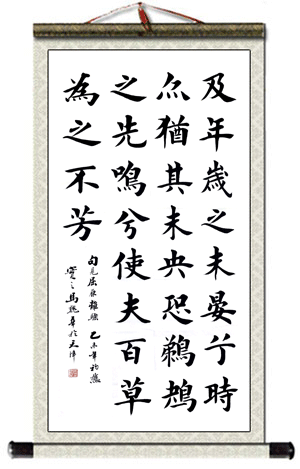 及年歲之未晏兮時
亦猶其未央恐鵜鴂
之先鳴兮使夫百草
為之不芳
句見屈原離騷 乙未年